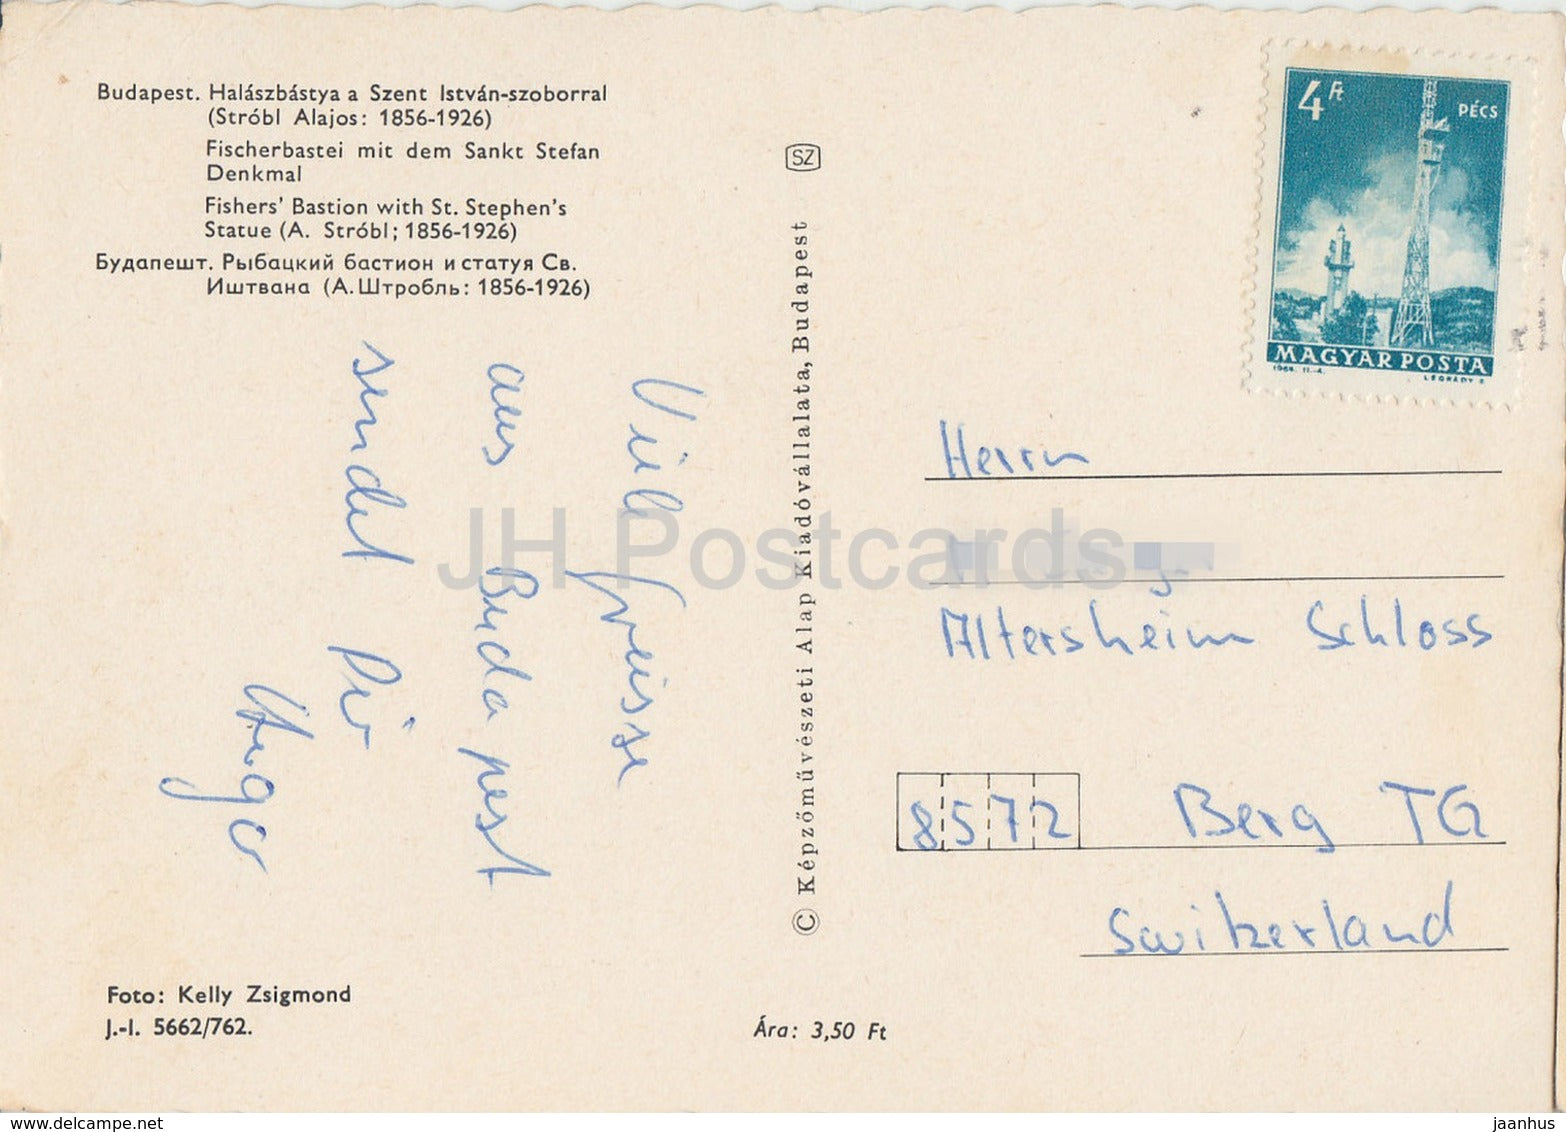 Budapest. Halászbástya a Szent István-szoborral
(Stróbl Alajos: 1856-1926)
Fischerbastei mit dem Sankt Stefan
Denkmal
Fishers' Bastion with St. Stephen's
Statue (A. Stróbl; 1856-1926)
Будапешт. Рыбацкий бастион и статуя Св.
Иштвана (А. Штробль: 1856-1926)
Viele Greisse
aus Budapest
sendet Dir
Hugo
Foto: Kelly Zsigmond
J.-I. 5662/762.
Ára: 3,50 Ft
SZ
© Képzőművészeti Alap Kiadóvállalata, Budapest
4 Ft
PÉCS
MAGYAR POSTA
LÉGRÁDY S.
Herrn
Altersheim Schloss
8572 Berg TG
Switzerland
JH Postcards
www.delcampe.net
jaanhus